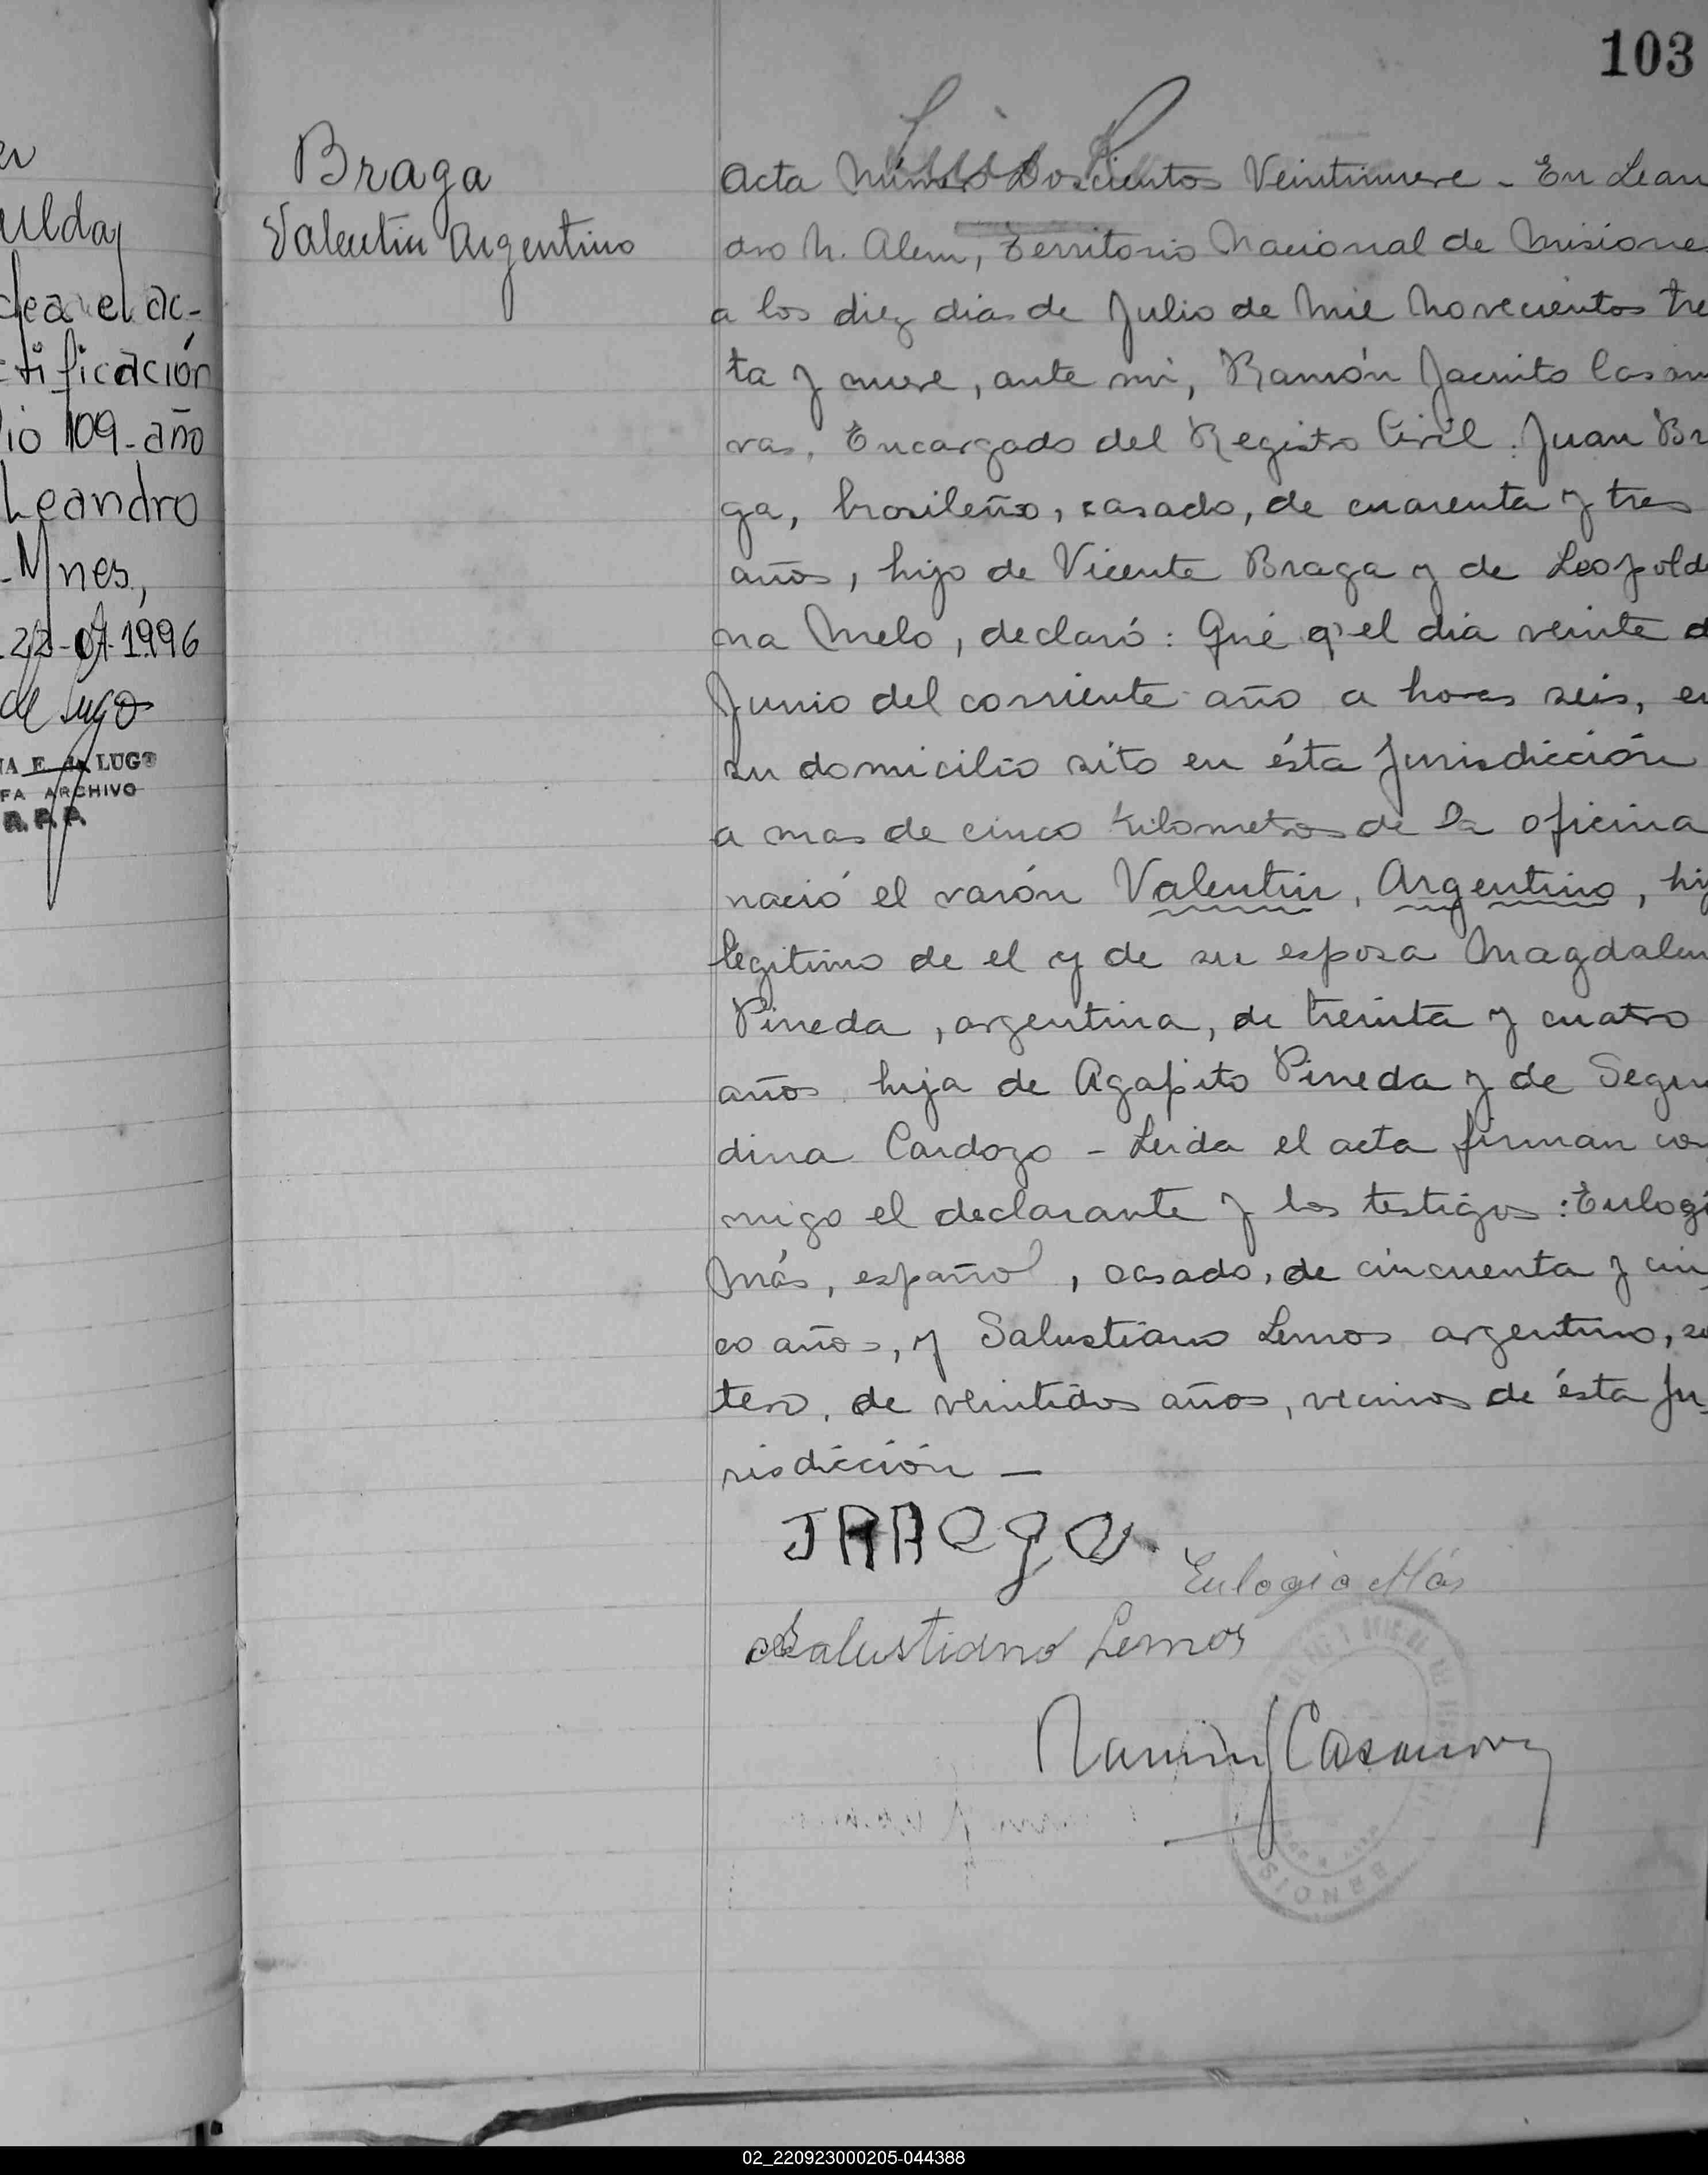 103
ulda
dea el ac-
ctificación
lio 109-año
Leandro
-Mnes,
22-07-1996
de Lugo
NA E. de LUGO
FA ARCHIVO
R.P.P.
Braga
Valentin Argentino
Acta Número Doscientos Veintinueve - En Lean
dro N. Alem, Territorio Nacional de Misiones
a los diez dias de Julio de Mil Novecientos tre
ta y nueve, ante mi, Ramón Jacinto Casano
vas, Encargado del Registro Civil. Juan Bra
ga, brasileño, casado, de cuarenta y tres
años, hijo de Vicente Braga y de Leopoldi
na Melo, declaró: Qué q' el dia veinte de
Junio del corriente año a horas seis, en
su domicilio sito en ésta Jurisdicción
a mas de cinco kilometros de la oficina
nació el varón Valentin, Argentino, hij
legitimo de el y de su esposa Magdalen
Pineda, argentina, de treinta y cuatro
años hija de Agapito Pineda y de Segun
dina Cardozo - Leida el acta firman con
migo el declarante y los testigos: Eulogi
Más, español, casado, de cincuenta y cin
co años, y Salustiano Lemos argentino, so
tero, de veintidos años, vecinos de ésta Ju
risdicción —
Eulogio Más
Salustiano Lemos
Ramón J Casanova
02_220923000205-044388